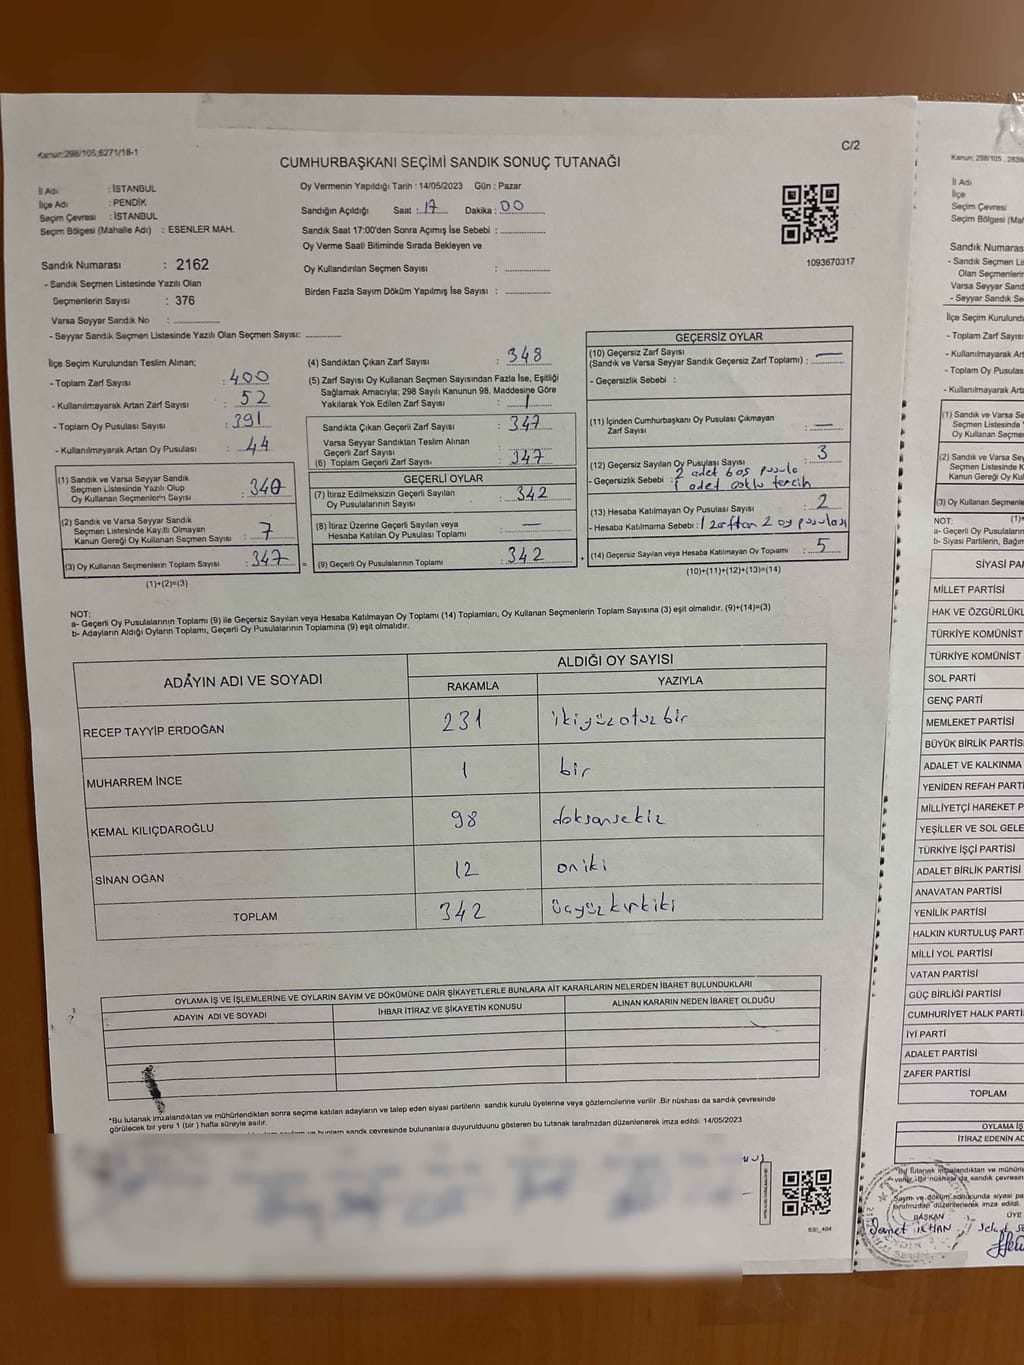 Kanun:298/105,6271/18-1
C/2
CUMHURBAŞKANI SEÇİMİ SANDIK SONUÇ TUTANAĞI
İl Adı : İSTANBUL
İlçe Adı : PENDİK
Seçim Çevresi : İSTANBUL
Seçim Bölgesi (Mahalle Adı) : ESENLER MAH.
Oy Vermenin Yapıldığı Tarih : 14/05/2023 Gün : Pazar
Sandığın Açıldığı Saat : 17 Dakika : 00
Sandık Saat 17:00'den Sonra Açımış İse Sebebi :
Oy Verme Saati Bitiminde Sırada Bekleyen ve
Oy Kullandırılan Seçmen Sayısı :
Birden Fazla Sayım Döküm Yapılmış İse Sayısı :
1093670317
Sandık Numarası : 2162
- Sandık Seçmen Listesinde Yazılı Olan
Seçmenlerin Sayısı : 376
Varsa Seyyar Sandık No :
- Seyyar Sandık Seçmen Listesinde Yazılı Olan Seçmen Sayısı:
İlçe Seçim Kurulundan Teslim Alınan;
- Toplam Zarf Sayısı : 400
- Kullanılmayarak Artan Zarf Sayısı : 52
- Toplam Oy Pusulası Sayısı : 391
- Kullanılmayarak Artan Oy Pusulası : 44
(1) Sandık ve Varsa Seyyar Sandık
Seçmen Listesinde Yazılı Olup
Oy Kullanan Seçmenlerin Sayısı : 340
(2) Sandık ve Varsa Seyyar Sandık
Seçmen Listesinde Kayıtlı Olmayan
Kanun Gereği Oy Kullanan Seçmen Sayısı : 7
(3) Oy Kullanan Seçmenlerin Toplam Sayısı : 347
(1)+(2)=(3)
(4) Sandıktan Çıkan Zarf Sayısı : 348
(5) Zarf Sayısı Oy Kullanan Seçmen Sayısından Fazla İse, Eşitliği
Sağlamak Amacıyla; 298 Sayılı Kanunun 98. Maddesine Göre
Yakılarak Yok Edilen Zarf Sayısı : 1
Sandıkta Çıkan Geçerli Zarf Sayısı : 347
Varsa Seyyar Sandıktan Teslim Alınan
Geçerli Zarf Sayısı :
(6) Toplam Geçerli Zarf Sayısı : 347
GEÇERLİ OYLAR
(7) İtiraz Edilmeksizin Geçerli Sayılan
Oy Pusulalarının Sayısı : 342
(8) İtiraz Üzerine Geçerli Sayılan veya
Hesaba Katılan Oy Pusulası Toplamı : —
(9) Geçerli Oy Pusulalarının Toplamı : 342
GEÇERSİZ OYLAR
(10) Geçersiz Zarf Sayısı
(Sandık ve Varsa Seyyar Sandık Geçersiz Zarf Toplamı) : —
- Geçersizlik Sebebi :
(11) İçinden Cumhurbaşkanı Oy Pusulası Çıkmayan
Zarf Sayısı : —
(12) Geçersiz Sayılan Oy Pusulası Sayısı : 3
- Geçersizlik Sebebi : 2 adet boş pusula
1 adet çoklu tercih
(13) Hesaba Katılmayan Oy Pusulası Sayısı : 2
- Hesaba Katılmama Sebebi : 1 zarftan 2 oy pusulası
(14) Geçersiz Sayılan veya Hesaba Katılmayan Oy Toplamı : 5
(10)+(11)+(12)+(13)=(14)
NOT:
a- Geçerli Oy Pusulalarının Toplamı (9) ile Geçersiz Sayılan veya Hesaba Katılmayan Oy Toplamı (14) Toplamları, Oy Kullanan Seçmenlerin Toplam Sayısına (3) eşit olmalıdır. (9)+(14)=(3)
b- Adayların Aldığı Oyların Toplamı, Geçerli Oy Pusulalarının Toplamına (9) eşit olmalıdır.
ADAYIN ADI VE SOYADI
ALDIĞI OY SAYISI
RAKAMLA YAZIYLA
RECEP TAYYİP ERDOĞAN 231 ikiyüzotuzbir
MUHARREM İNCE 1 bir
KEMAL KILIÇDAROĞLU 98 doksansekiz
SİNAN OĞAN 12 oniki
TOPLAM 342 üçyüzkırkiki
OYLAMA İŞ VE İŞLEMLERİNE VE OYLARIN SAYIM VE DÖKÜMÜNE DAİR ŞİKAYETLERLE BUNLARA AİT KARARLARIN NELERDEN İBARET BULUNDUKLARI
ADAYIN ADI VE SOYADI İHBAR İTİRAZ VE ŞİKAYETİN KONUSU ALINAN KARARIN NEDEN İBARET OLDUĞU
*Bu tutanak imzalandıktan ve mühürlendikten sonra seçime katılan adayların ve talep eden siyasi partilerin sandık kurulu üyelerine veya gözlemcilerine verilir .Bir nüshası da sandık çevresinde
görülecek bir yere 1 (bir ) hafta süreyle asılır.
sandık çevresinde bulunanlara duyurulduunu gösteren bu tutanak tarafımızdan düzenlenerek imza edildi. 14/05/2023
SSI_404
Kanun: 298/105
İl Adı
İlçe
Seçim Çevresi
Seçim Bölgesi
Sandık Numaras
- Sandık Seçmen
Olan Seçmenlerin
Varsa Seyyar Sand
- Seyyar Sandık Se
İlçe Seçim Kurulund
- Toplam Zarf Sayıs
- Kullanılmayarak Ar
- Toplam Oy Pusulas
- Kullanılmayarak Artan
(1) Sandık ve Varsa Se
Seçmen Listesinde
Oy Kullanan Seçmen
(2) Sandık ve Varsa Se
Seçmen Listesinde
Kanun Gereği Oy Ku
(3) Oy Kullanan Seçmenle
NOT:
a- Geçerli Oy Pusulaların
b- Siyasi Partilerin, Bağım
SİYASİ PA
MİLLET PARTİSİ
HAK VE ÖZGÜRLÜKL
TÜRKİYE KOMÜNİST
TÜRKİYE KOMÜNİST
SOL PARTİ
GENÇ PARTİ
MEMLEKET PARTİSİ
BÜYÜK BİRLİK PARTİS
ADALET VE KALKINMA
YENİDEN REFAH PART
MİLLİYETÇİ HAREKET P
YEŞİLLER VE SOL GELE
TÜRKİYE İŞÇİ PARTİSİ
ADALET BİRLİK PARTİSİ
ANAVATAN PARTİSİ
YENİLİK PARTİSİ
HALKIN KURTULUŞ PART
MİLLİ YOL PARTİSİ
VATAN PARTİSİ
GÜÇ BİRLİĞİ PARTİSİ
CUMHURİYET HALK PARTİ
İYİ PARTİ
ADALET PARTİSİ
ZAFER PARTİSİ
TOPLAM
OYLAMA İŞ
İTİRAZ EDENİN AD
BAŞKAN ÜYE